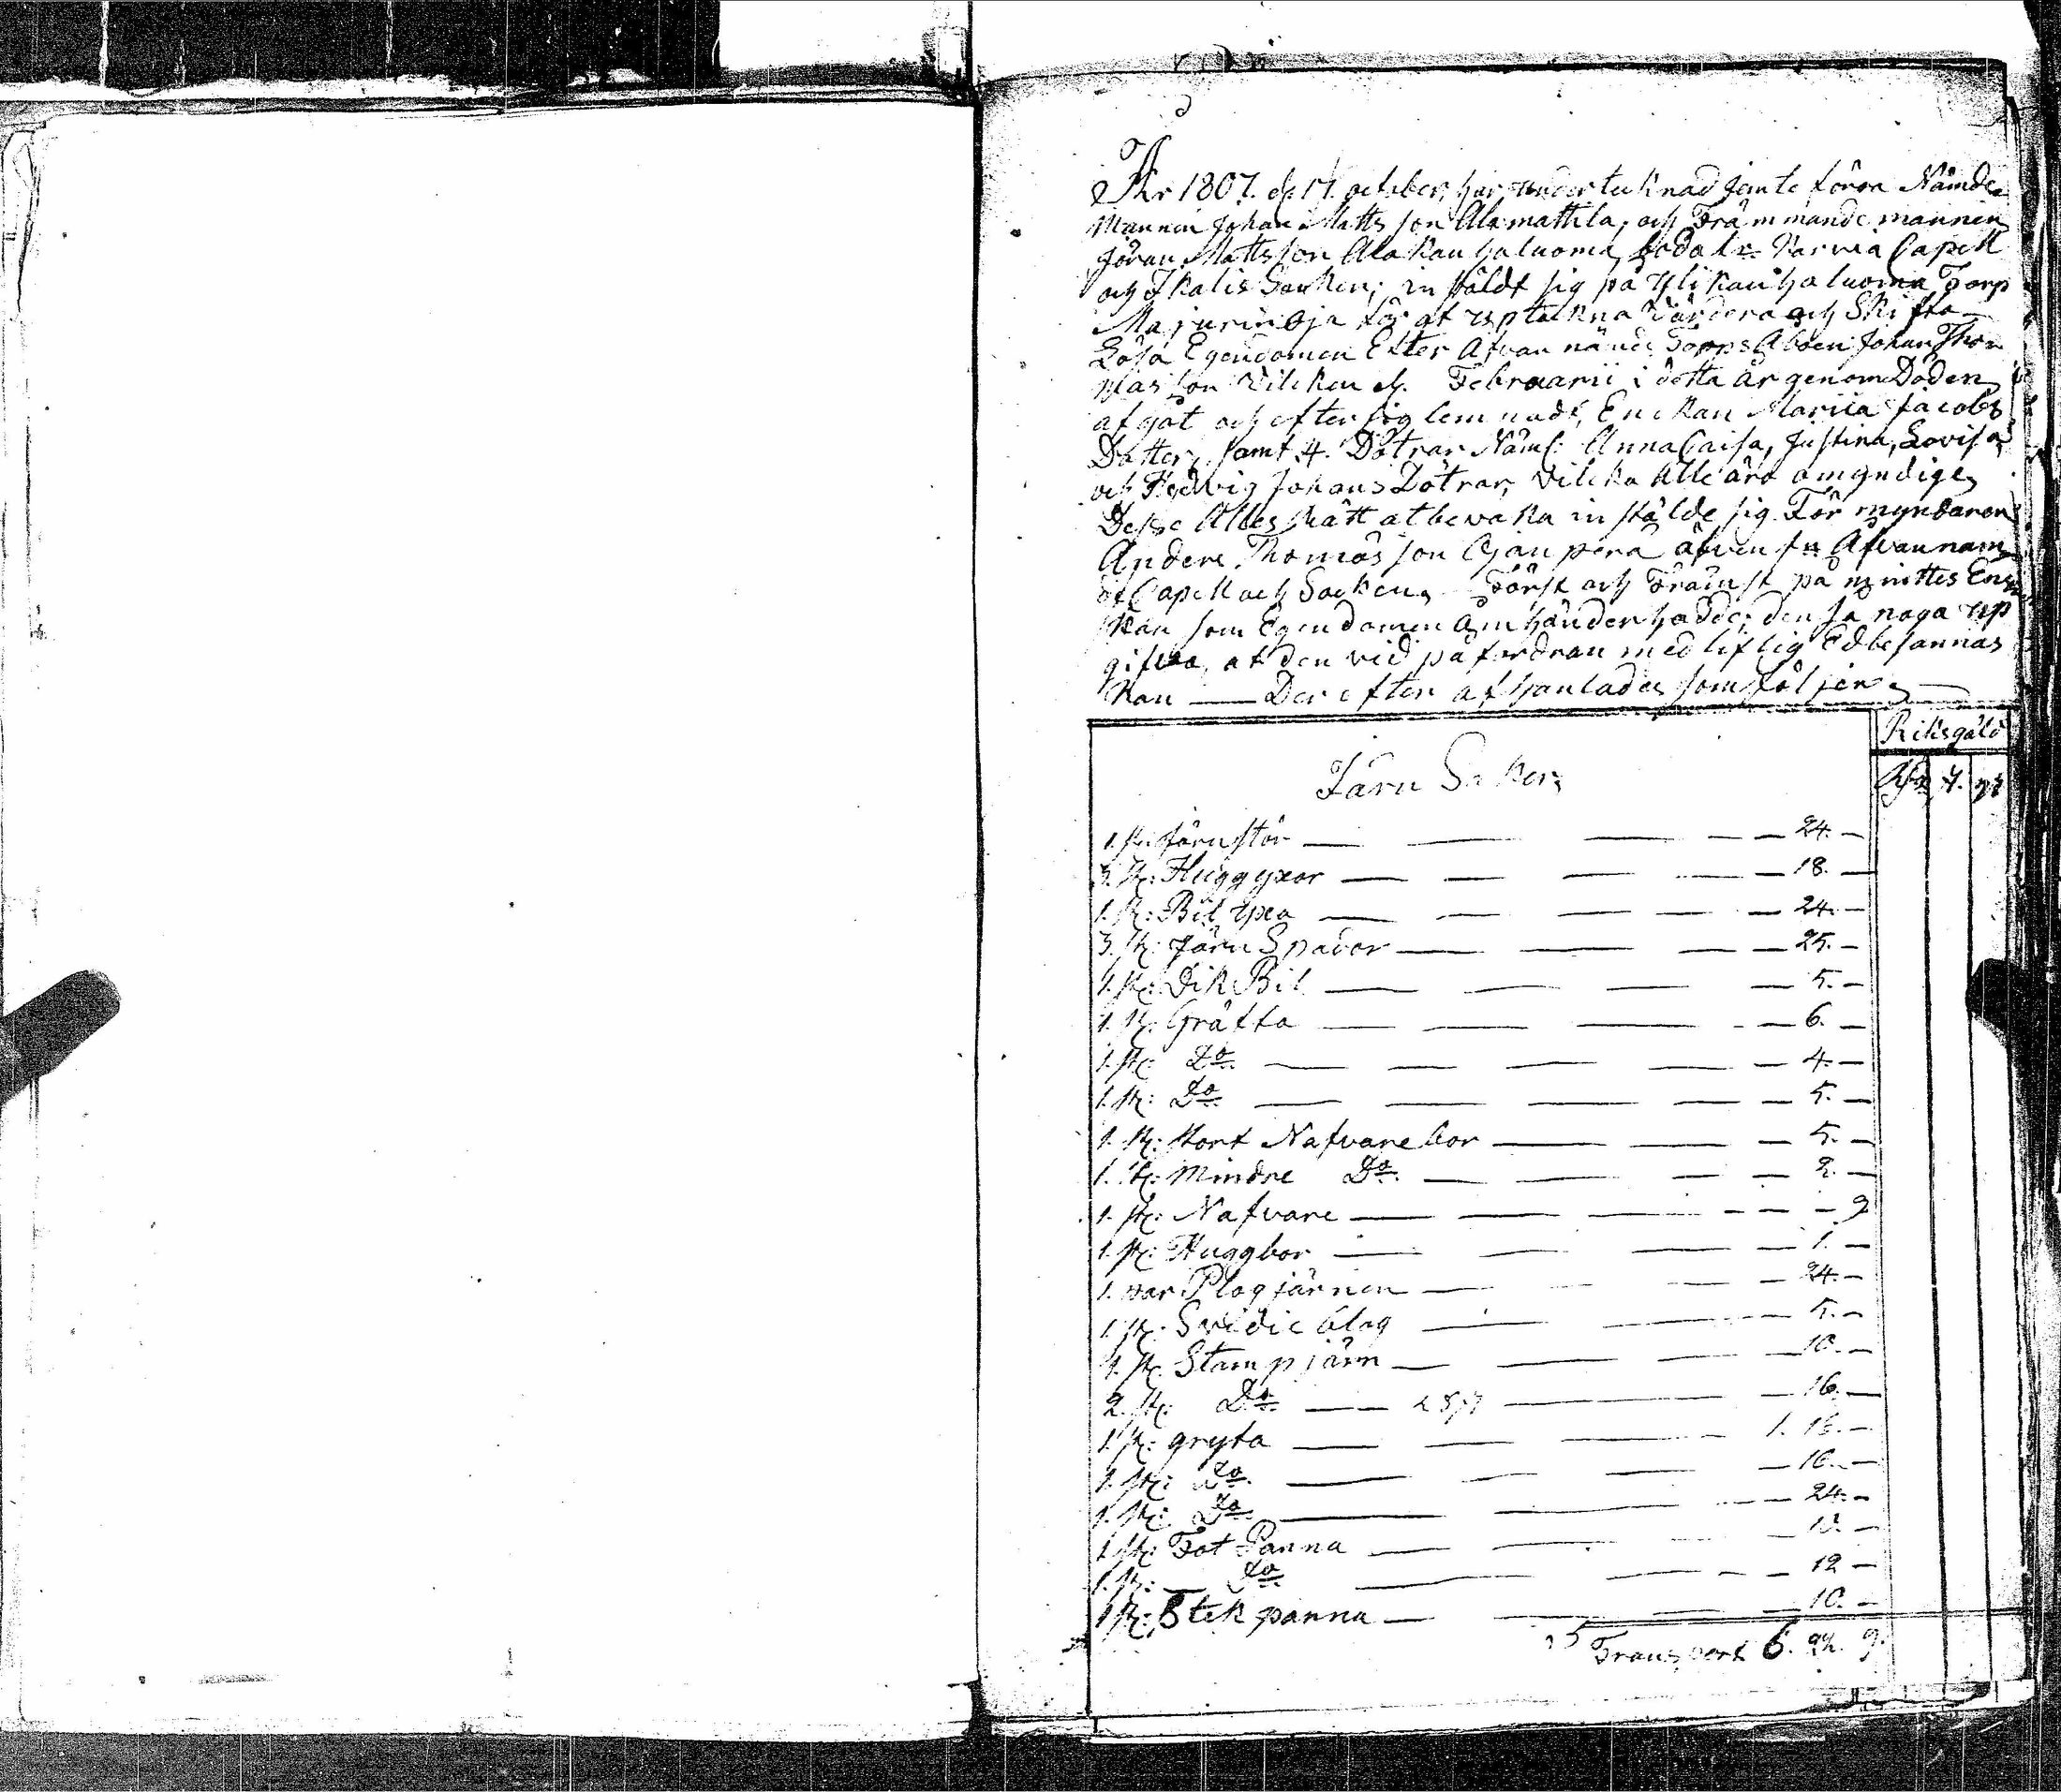 År 1807. d. 17. october, har undertecknad jemte förra Nämde
Mannen Johan Matts son Alamattila, och Främmande mannen
Jöran Mattsson Ala Kauhaluoma, Karvia Capell
och Ikalis Socken; in stäldt sig på Yli Kauhaluoma Torp
Majurinoja för at uptekna Värdera och Skifta
Lösa Egendomen Efter Afvan nämde Torps Åboen Johan Tho
mas son Vilcken d. Februarii i detta år genom Döden
afgåt och efter sig lemnadt, Enckan Mariia Jacobs
Dotter, samt 4. Dötrar Näml: Anna Caisa, Justina, Lovisa
och Hedvig Johans Dötrar, Vilcka alle äro omyndige,
Desse Alles Rätt at bevaka in stälde sig För myndaren
Anders Thomas son Ojanperä äfven Afvan nam
Capell och Socken, Först och Främst på mintes Enc
kan som Egendomen om händer hadde; den så noga up
gifva, at den vid på fordran med liflig Ed besannas
kan — Der efter af handlades som följer,
Riksgäld
Järn Saker;
1. st: Järn stör — — — 24. —
3. st: Huggyxor — — — 18. —
1. st: Bil yxa — — — 24. —
3. st: Järn Spador — — — 25. —
1. st: Dik Bil — — — 5. —
1. st: Gräfta — — — 6. —
1. st: Do — — — 4. —
1. st: Do — — — 5. —
1. st: stort Nafvare bor — — 5. —
1. st: Mindre Do. — — 2. —
1. st: Nafvare — — — — 9
1. st: Huggbor — — — 1. —
1. par Plogjärnen — — — 24. —
1. st: — — 5. —
4. st: Stampjärn — — — 10. —
2. st: Do — — 16. —
1. st: gryta — — — 1. 16. —
1. st: Do. — — — 16. —
1. st: Do. — — — 24. —
1. st: Fot Panna — — —
1. st: — Do — — — 12 —
1. st: Stek panna — — — 10. —
Transport 6. 22. 9.